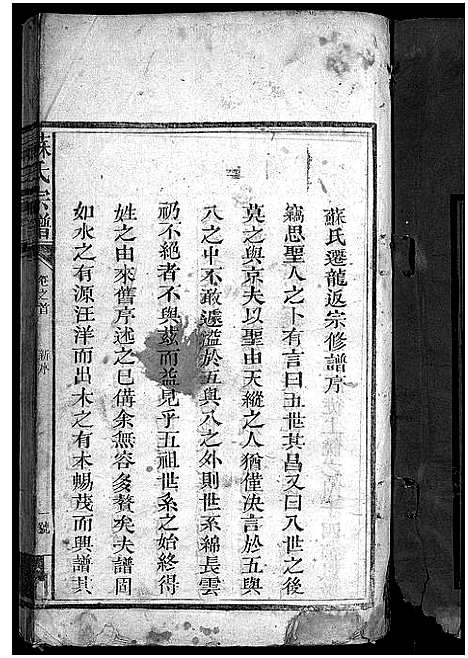 蘇氏遷龍返宗修譜序
竊思聖人之卜有言曰五世其昌又曰八世之後
莫之與京夫以聖由天縱之人猶僅決言於五與
八之中不敢遽溢於五與八之外則世系綿長雲
礽不絕者不與茲而益見乎五祖世系之始終得
姓之由來舊序述之已備余無容多贅矣夫譜固
如水之有源汪洋而出木之有本暢茂而興譜其
蘇氏宗譜
卷之首
一號